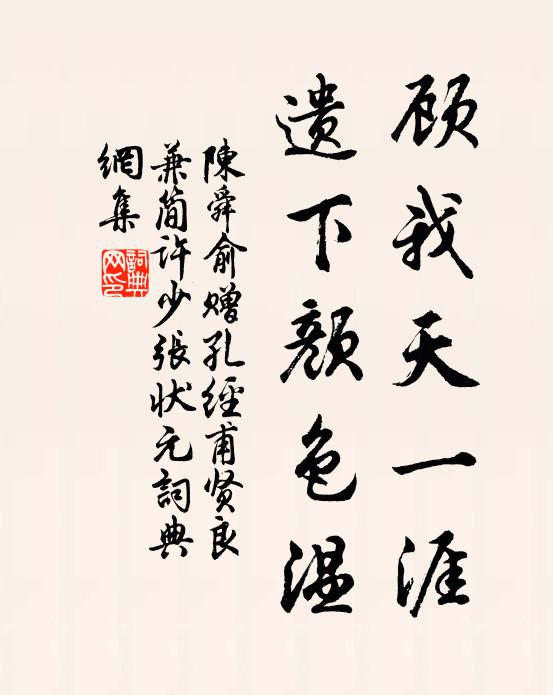 顾我天一涯
遗下颜色温
陳舜俞赠孔經甫贤良
兼简許少張状元詞典
網集
詞典网印